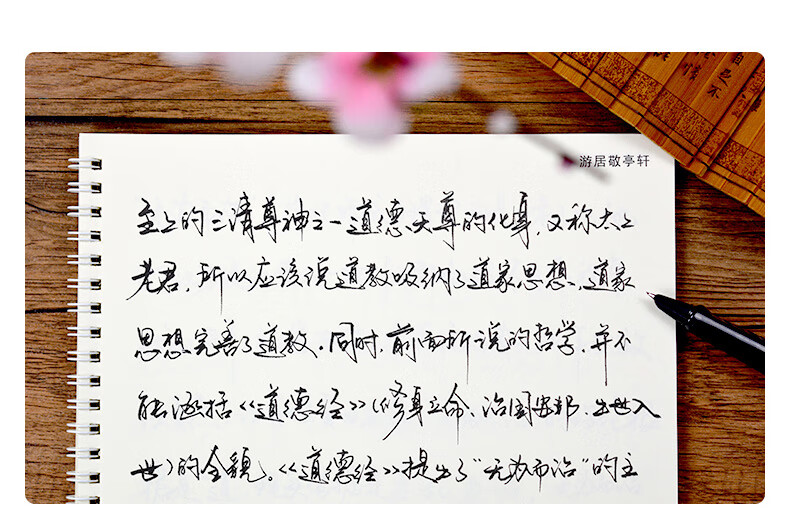 游居敬亭轩
至上的三清尊神之一道德天尊的化身,又称太上
老君,所以应该说道教吸纳了道家思想,道家
思想完善了道教。同时,前面所说的哲学,并不
能涵括《道德经》(修身立命、治国安邦、出世入
世)的全貌。《道德经》提出了“无为而治”的主